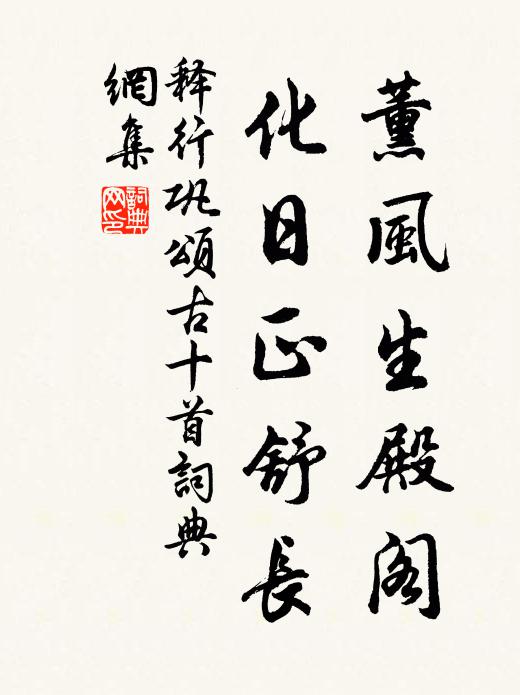 薰風生殿阁
化日正舒長
释行巩頌古十首詞典
網集
詞典
网印